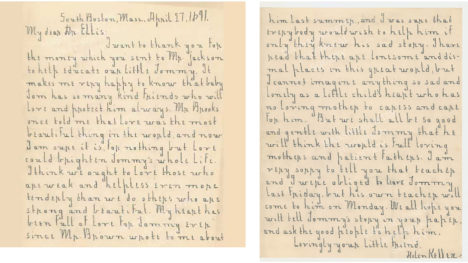 South Boston, Mass. April 27, 1891.
My dear Dr. Ellis:
I want to thank you for
the money which you sent to Mr. Jackson
to help educate our little Tommy. It
makes me very happy to know that baby
Tom has so many kind friends who will
love and protect him always. Mr. Brooks
once told me that love was the most
beautiful thing in the world, and now
I am sure it is, for nothing but love
could brighten Tommy's whole life.
I think we ought to love those who
are weak and helpless even more
tenderly than we do others who are
strong and beautiful. My heart has
been full of love for Tommy ever
since Mr. Brown wrote to me about
him last summer, and I was sure that
everybody would wish to help him, if
only they knew his sad story. I have
read that there are lonesome and dis-
mal places in this great world, but
I cannot imagine anything so sad and
lonely as a little child's heart who has
no loving mother to caress and care
for him. But we shall all be so good
and gentle with little Tommy that he
will think the world is full loving
mothers and patient fathers. I am
very sorry to tell you that teacher
and I were obliged to leave Tommy
last Friday, but his own teacher will
come to him on Monday. We all hope you
will tell Tommy's story in your paper,
and ask the good people to help him.
Lovingly your little friend,
Helen Keller.